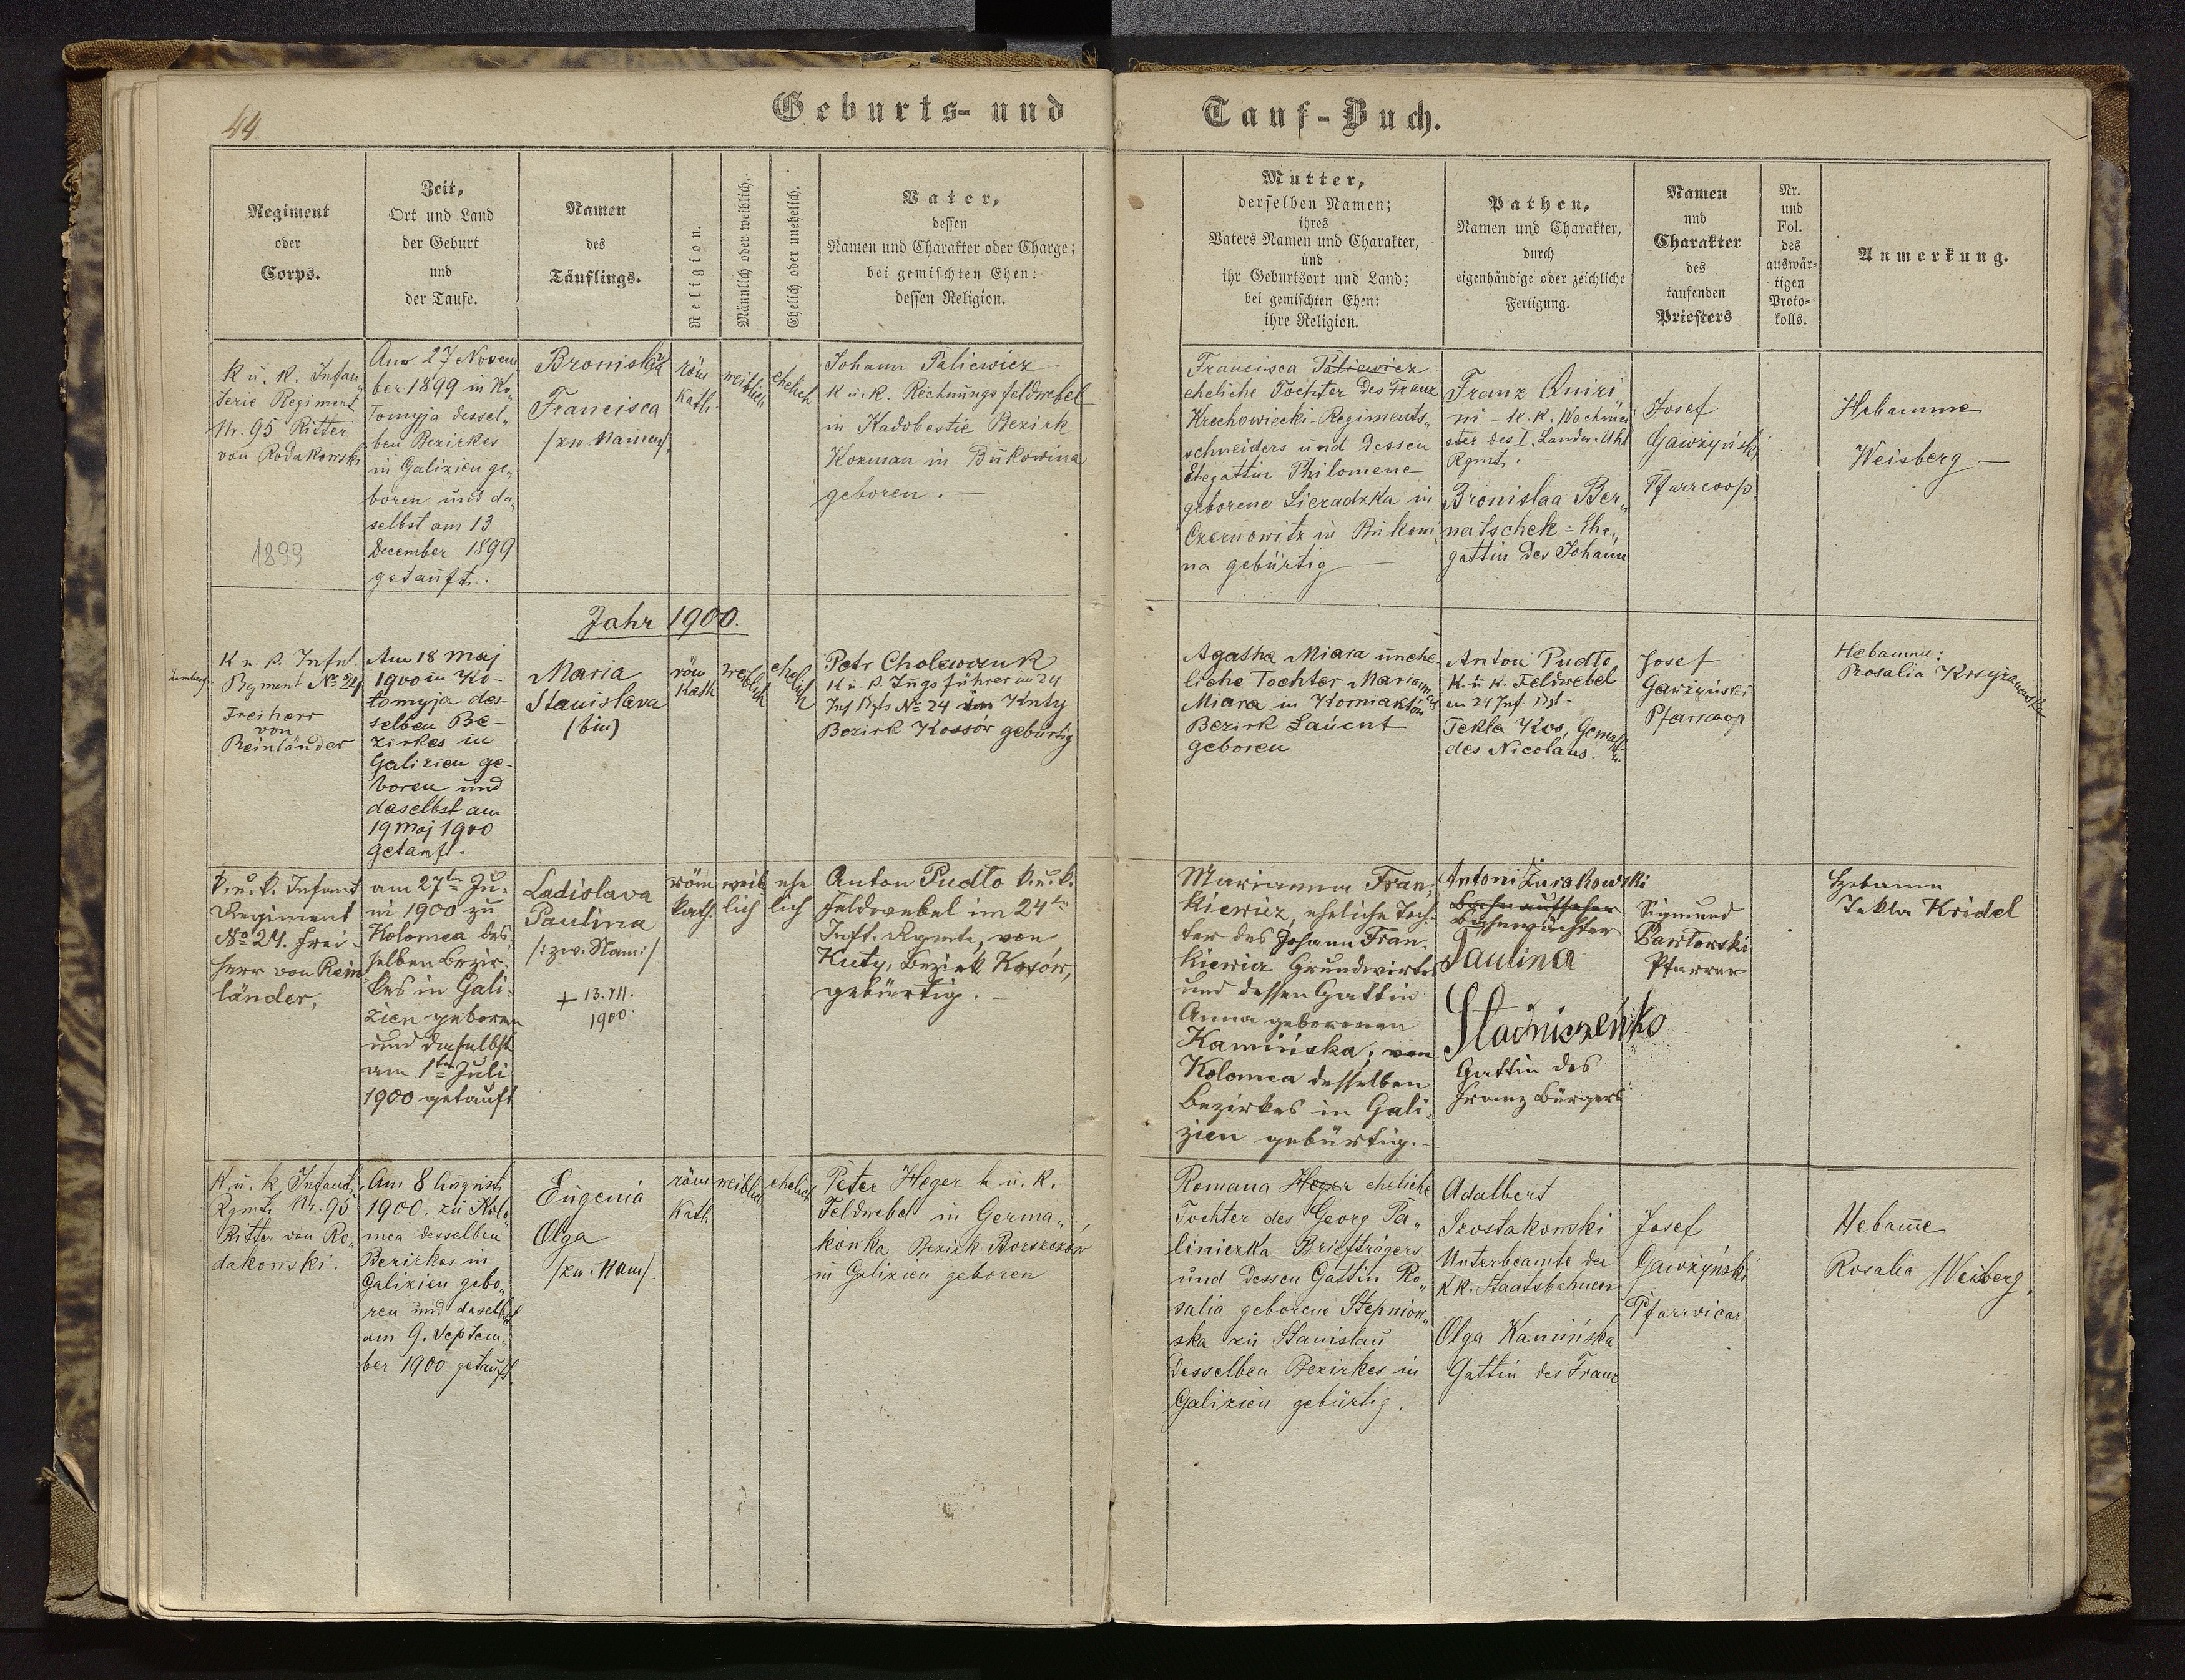 44
Geburts- und
Tauf-Buch.
Regiment
oder
Corps.
Zeit,
Ort und Land
der Geburt
und
der Taufe.
Namen
des
Täuflings.
Religion.
Männlich oder weiblich.
Ehelich oder unehelich.
Vater,
dessen
Namen und Charakter oder Charge;
bei gemischten Ehen:
dessen Religion.
Mutter,
derselben Namen;
ihres
Vaters Namen und Charakter,
und
ihr Geburtsort und Land;
bei gemischten Ehen:
ihre Religion.
Pathen,
Namen und Charakter,
durch
eigenhändige oder zeichliche
Fertigung.
Namen
und
Charakter
des
taufenden
Priesters
Nr.
und
Fol.
des
auswär-
tigen
Proto-
kolls.
Anmerkung.
K u. K. Infan„
terie Regiment
Nr. 95 Ritter
von Rodakowski
1899
Am 27 Novem
ber 1899 in Ko„
lomyja dessel„
ben Bezirkes
in Galizien ge„
boren und da„
selbst am 13
December 1899
getauft.
Bronisława
Francisca
/zw. Namen/
röm
kath.
weiblich
ehelich
Johann Paliewicz
K u. K. Rechnungsfeldwebel
in Kadobestie Bezirk
Kozman in Bukowina
geboren. —
Francisca Paliewicz
eheliche Tochter des Franz
Krechowiecki - Regiments„
schneiders und dessen
Ehegattin Philomene
geborene Sieradzka in
Czernowitz in Bukowi
na gebürtig —
Franz Quiri„
ni - K. K. Wachmei
ster des I. Landw. Uhl
Rgmt.
Bronislaa Ber„
natschek = Ehe„
gattin des Johann
Josef
Gawżyński
Pfarrcoop.
Hebamme
Weisberg —
Jahr 1900.
Lemberg
K u. K. Infnt
Rgment № 24
Freiherr
von
Reinländer
Am 18 Maj
1900 in Ko-
lomyja des-
selben Be-
zirkes in
Galizien ge-
boren und
daselbst am
19 Maj 1900
getauft.
Maria
Stanislava
(bin)
röm
Kath
weiblich
ehelich
Petr Cholewczuk
K u. K Zugsführer in 24
Inf Rgts № 24 in Kuty
Bezirk Kossów gebürtig
Agatha Miara unehe
liche Tochter Marianna
Miara in Korniaktów
Bezirk Łańcut
geboren
Anton Pudło
K. u K. Feldwebel
in 24 Inf. Rgt.
Tekla Kos, Gemahlin
des Nicolaus.
Josef
Gawżyński
Pfarrcoop
Hebamme:
Rosalia
K. u. K. Infant
Regiment
No 24. Frei-
herr von Rein
länder,
am 27ten Ju-
ni 1900 zu
Kolomea des
selben Bezir-
kes in Gali-
zien geboren
und daselbst
am 1ten Juli
1900 getauft
Ladislava
Paulina
/: zw. Nam :/
+ 13. VII.
1900.
röm
kath.
weib
lich
ehe
lich
Anton Pudło k. u. k.
Feldwebel im 24ten
Inft. Rgmte, von
Kuty, Bezirk Kosów,
gebürtig. —
Marianna Fran-
kiewicz, eheliche Toch-
ter des Johann Fran-
kiewicz Grundwirtes
und dessen Gattin
Anna geborenen
Kamińska, von
Kolomea desselben
Bezirkes in Gali-
zien gebürtig. —
Antoni Żurakowski
Bahnaufseher
Bahnwächter
Paulina
Stachniczeńko
Gattin des
Franz Bürgers
Sigmund
Pawłowski
Pfarrer
Hebamme
Tekla Kridel
K u. k. Infant.
Rgmt. Nr. 95
Ritter von Ro„
dakowski.
Am 8 August
1900. zu Kolo„
mea desselben
Bezirkes in
Galizien gebo„
ren und daselbst
am 9. Septem„
ber 1900 getauft.
Eugenia
Olga
/zw. Nam/
röm
Kath
weiblich
ehelich
Peter Heger k. u. K.
Feldwebel in Germa„
kówka Bezirk Borszczów
in Galizien geboren
Romana Heger eheliche
Tochter des Georg Pa„
liniczka Briefträgers
und dessen Gattin Ro„
salia geborene Stepniow„
ska zu Stanislau
desselben Bezirkes in
Galizien gebürtig.
Adalbert
Szostakowski
Unterbeamte der
KK. Staatsbahnen
Olga Kamińska
Gattin des Franz
Josef
Gawżyński
Pfarrvicar
Hebamme
Rosalia Weisberg.